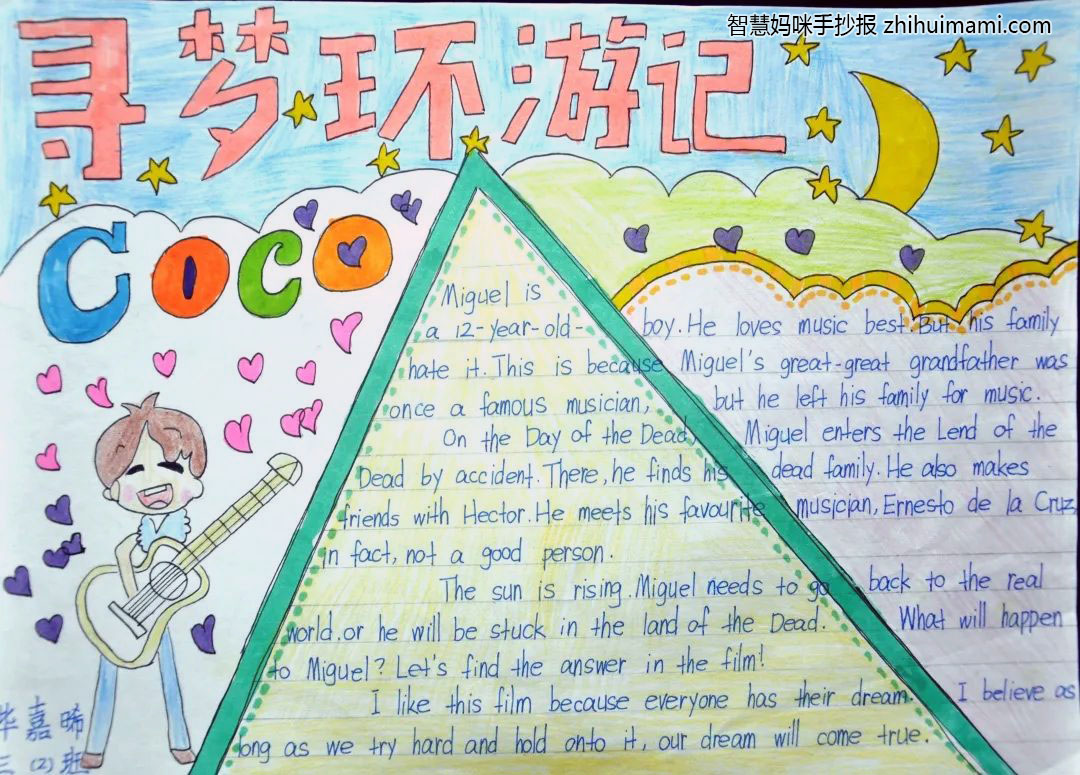 智慧妈咪手抄报 zhihuimami.com
寻梦环游记
Coco
Miguel is
a 12-year-old- boy. He loves music best. But his family
hate it. This is because Miguel's great-great grandfather was
once a famous musician, but he left his family for music.
On the Day of the Dead, Miguel enters the Lend of the
Dead by accident. There, he finds his dead family. He also makes
friends with Hector. He meets his favourite musician, Ernesto de la Cruz,
in fact, not a good person.
The sun is rising. Miguel needs to go back to the real
world. or he will be stuck in the land of the Dead. What will happen
to Miguel? Let's find the answer in the film!
I like this film because everyone has their dream. I believe as
long as we try hard and hold onto it, our dream will come true.
毕嘉晞
三 (2) 班